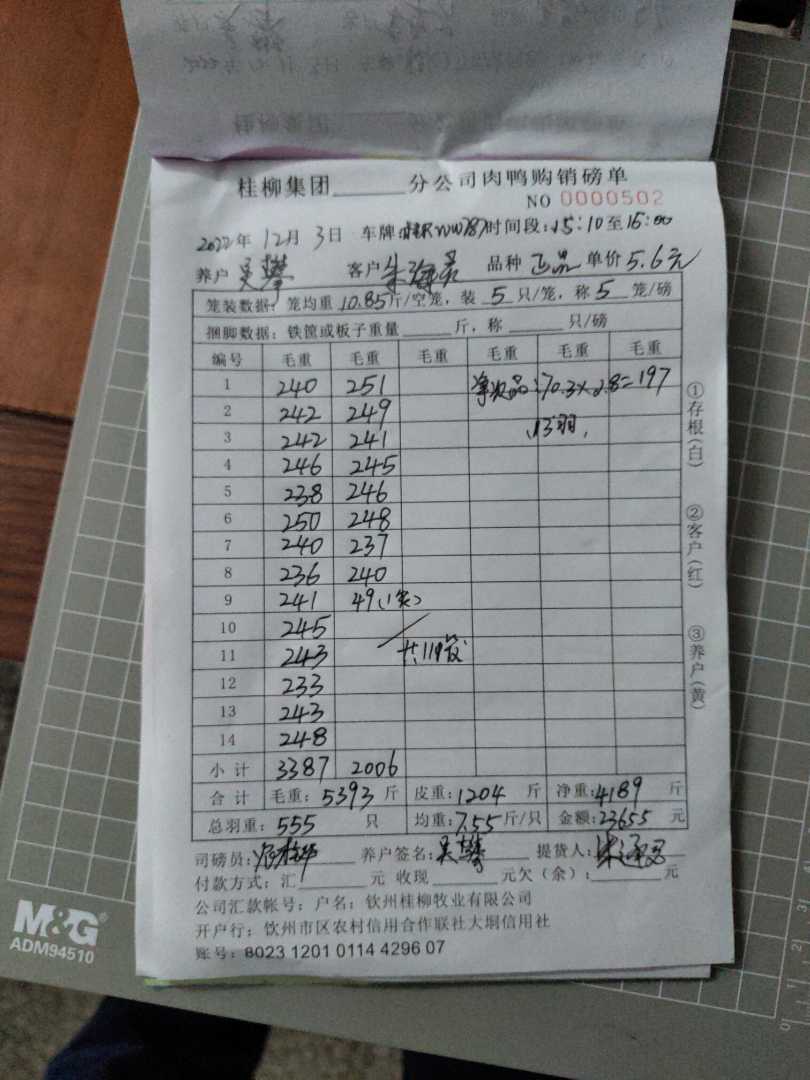 桂柳集团______分公司肉鸭购销磅单
NO 0000502
2022年 12月 3日 车牌: 时间段:15:10至16:00
养户 吴攀 客户 品种 正品 单价 5.6元
笼装数据: 笼均重 10.85斤/空笼, 装 5 只/笼, 称 5 笼/磅
捆脚数据: 铁筐或板子重量______斤, 称______只/磅
编号 毛重 毛重 毛重 毛重 毛重 毛重
1 240 251 次品:70.3×2.8=197
2 242 249
3 242 241 13羽,
4 246 245
5 238 246
6 250 248
7 240 237
8 236 240
9 241 49(1笼)
10 245
11 243 共119
12 233
13 243
14 248
小计 3387 2006
合计 毛重: 5393 斤 皮重: 1204 斤 净重: 4189 斤
总羽重: 555 只 均重: 7.55斤/只 金额: 23655 元
司磅员: 养户签名: 吴攀 提货人:
付款方式: 汇______元 收现______元欠(余):______元
公司汇款帐号: 户名: 钦州桂柳牧业有限公司
开户行: 钦州市区农村信用合作联社大垌信用社
账号: 8023 1201 0114 4296 07
①存根(白)
②客户(红)
③养户(黄)
M&G
ADM94510